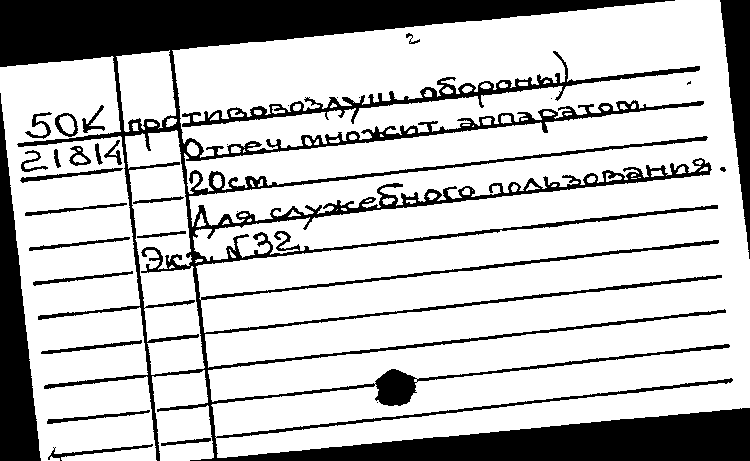 2
50К противовоздуш. обороны)
21814 Отпеч. множит. аппаратом.
20см.
Для служебного пользования.
Экз. №32.